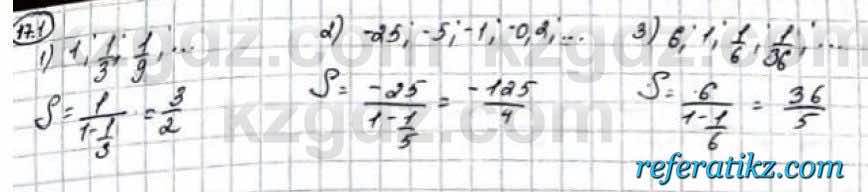 17.1
1) 1; 1/3; 1/9; ...
S = 1/(1-1/3) = 3/2
2) -25; -5; -1; -0,2; ...
S = -25/(1-1/5) = -125/4
3) 6; 1; 1/6; 1/36; ...
S = 6/(1-1/6) = 36/5
kzgdz.com
referatikz.com